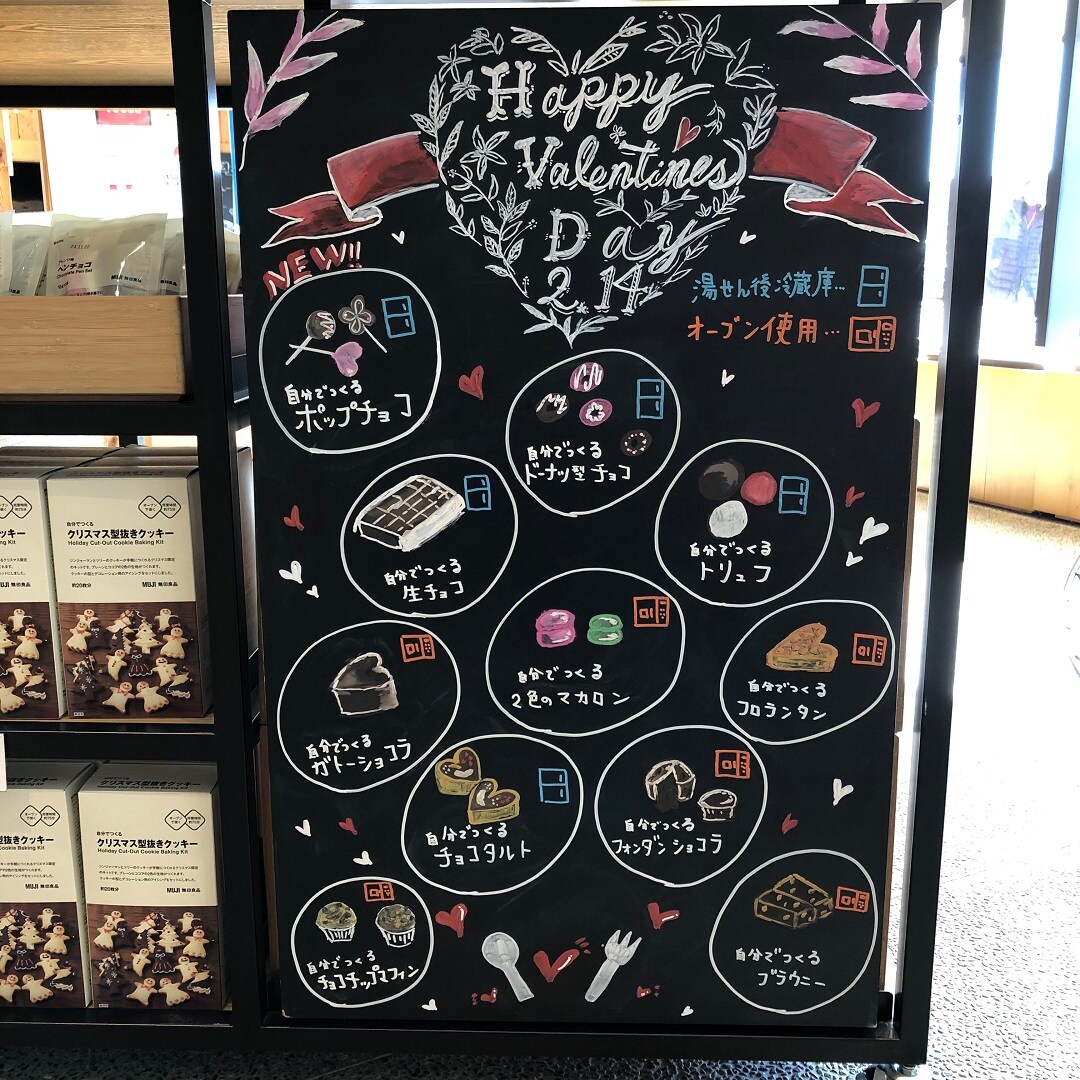 Happy
Valentines
Day
2.14
NEW!!
湯せん後冷蔵庫…
オーブン使用…
自分でつくる
ポップチョコ
自分でつくる
ドーナツ型チョコ
自分でつくる
生チョコ
自分でつくる
トリュフ
自分でつくる
2色のマカロン
自分でつくる
フロランタン
自分でつくる
ガトーショコラ
自分でつくる
チョコタルト
自分でつくる
フォンダンショコラ
自分でつくる
チョコチップマフィン
自分でつくる
ブラウニー
ペンチョコ
Chocolate Pen Set
自分でつくる
クリスマス型抜きクッキー
Holiday Cut-Out Cookie Baking Kit
約20枚分
MUJI 無印良品
自分でつくる
クリスマス型抜きクッキー
Holiday Cut-Out Cookie Baking Kit
約20枚分
MUJI 無印良品